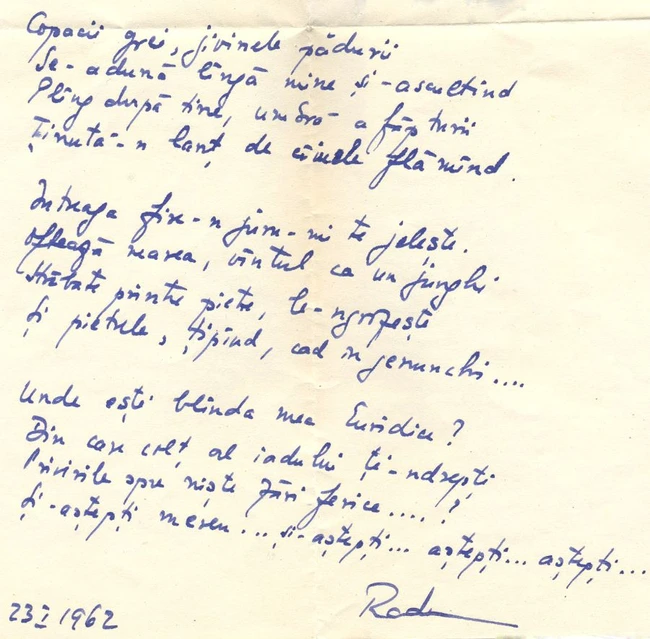 Copacii grei, jivinele pădurii
Se-adună lîngă mine și-ascultînd
Plîng după tine, umbră a făpturii
Ținută-n lanț de cîinele flămînd.
Întreaga fire-n juru-mi te jelește.
Oftează marea, vîntul ca un junghi
Străbate printre pietre, le-ngrozește
Și pietrele, țipînd, cad în genunchi....
Unde ești blînda mea Euridice?
Din care colț al iadului ți-ndrepți
Privirile spre niște țări ferice....?
Și-aștepți mereu... și-aștepți... aștepți... aștepți...
23 I 1962
Radu